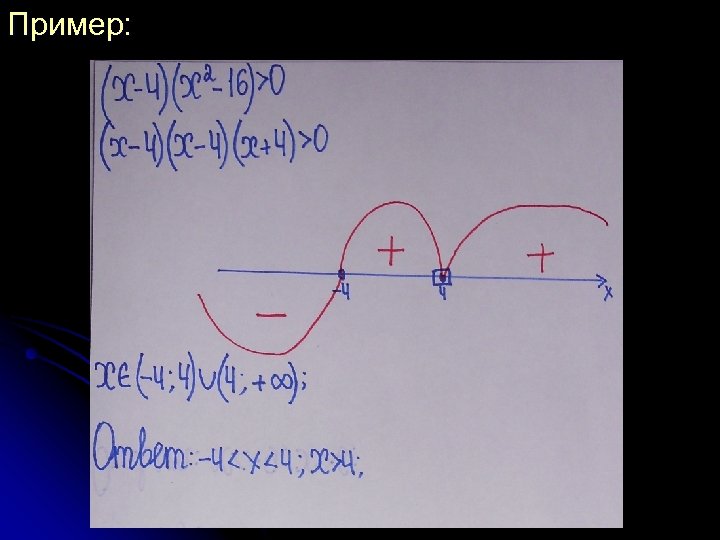 Пример:
(x-4)(x²-16)>0
(x-4)(x-4)(x+4)>0
+ +
-4 4 x
−
x∈(-4;4)∪(4;+∞);
Ответ: -4<x<4; x>4;